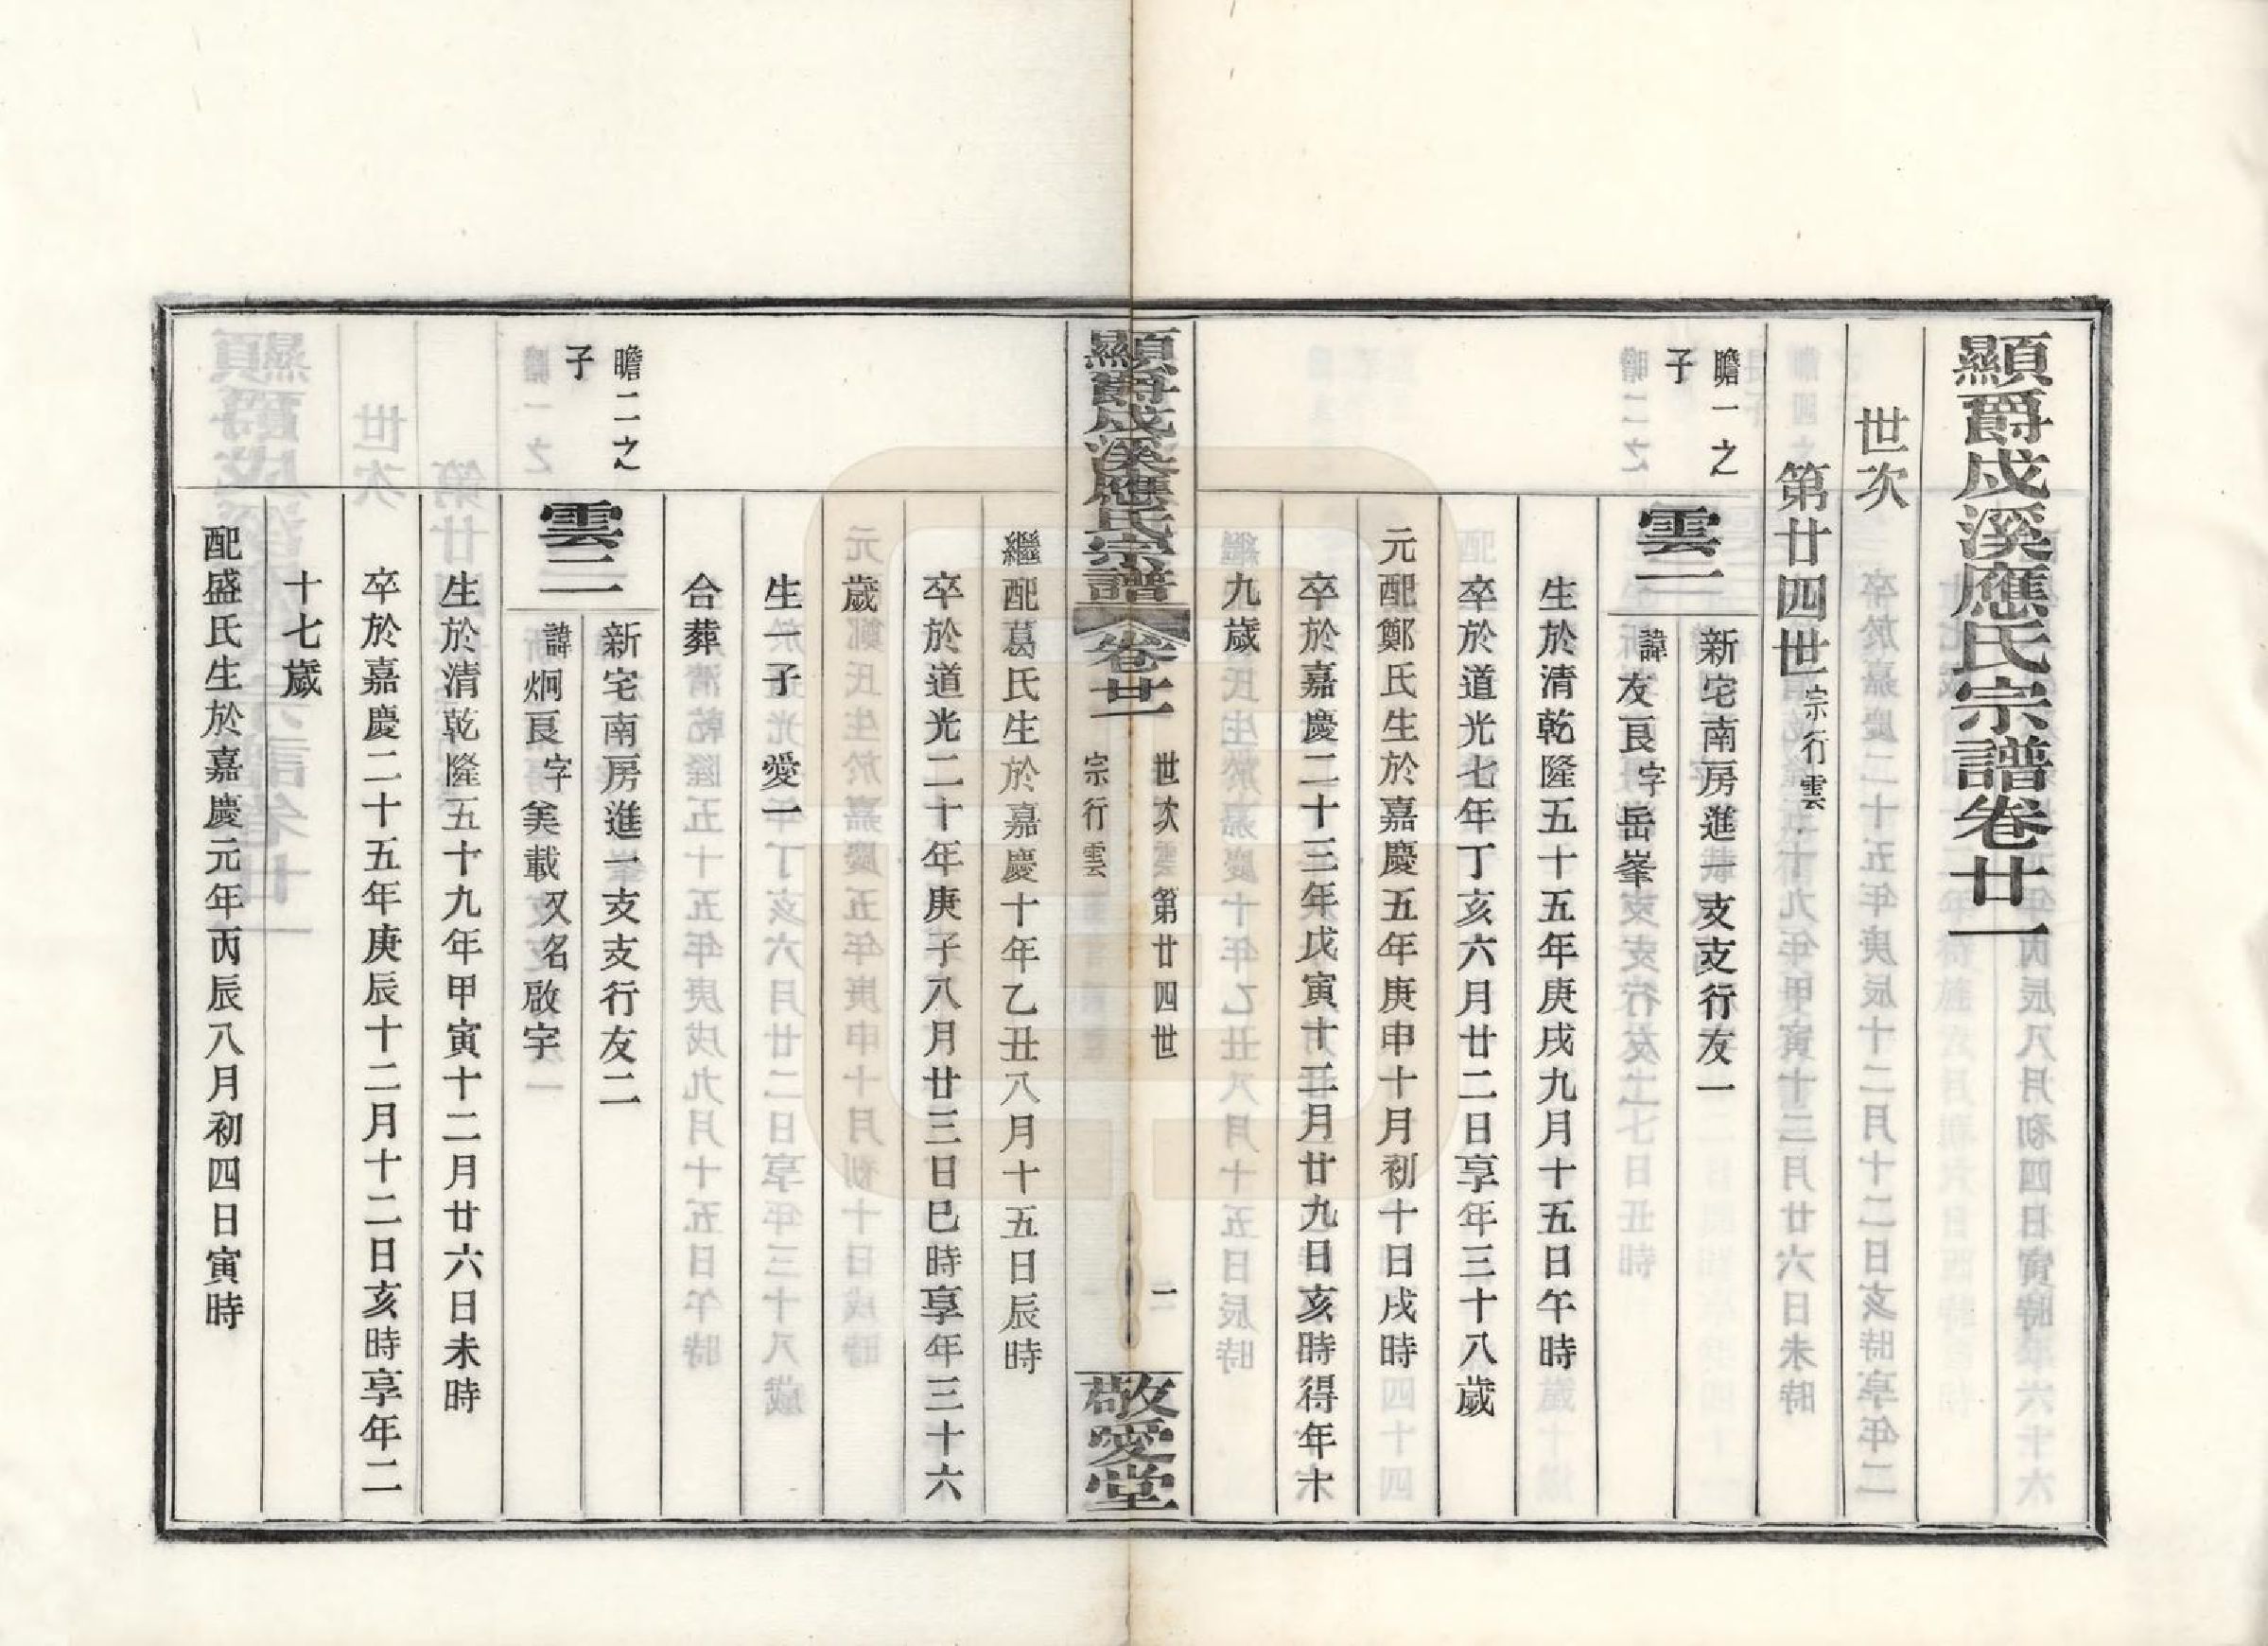 顯爵戍溪應氏宗譜卷廿一
世次
第廿四世宗行雲
瞻一之子
雲一
新宅南房進一支支行友一
諱友良字岳峯
生於清乾隆五十五年庚戌九月十五日午時
卒於道光七年丁亥六月廿二日享年三十八歲
元配鄭氏生於嘉慶五年庚申十月初十日戌時
卒於嘉慶二十三年戊寅十二月廿九日亥時得年十
九歲
顯爵戍溪應氏宗譜
卷廿一
世次 第廿四世
宗行雲
二
敬愛堂
繼配葛氏生於嘉慶十年乙丑八月十五日辰時
卒於道光二十年庚子八月廿三日巳時享年三十六
歲
生一子 愛一
合葬
瞻二之子
雲二
新宅南房進一支支行友二
諱炯良字美載又名啟宇
生於清乾隆五十九年甲寅十二月廿六日未時
卒於嘉慶二十五年庚辰十二月十二日亥時享年二
十七歲
配盛氏生於嘉慶元年丙辰八月初四日寅時